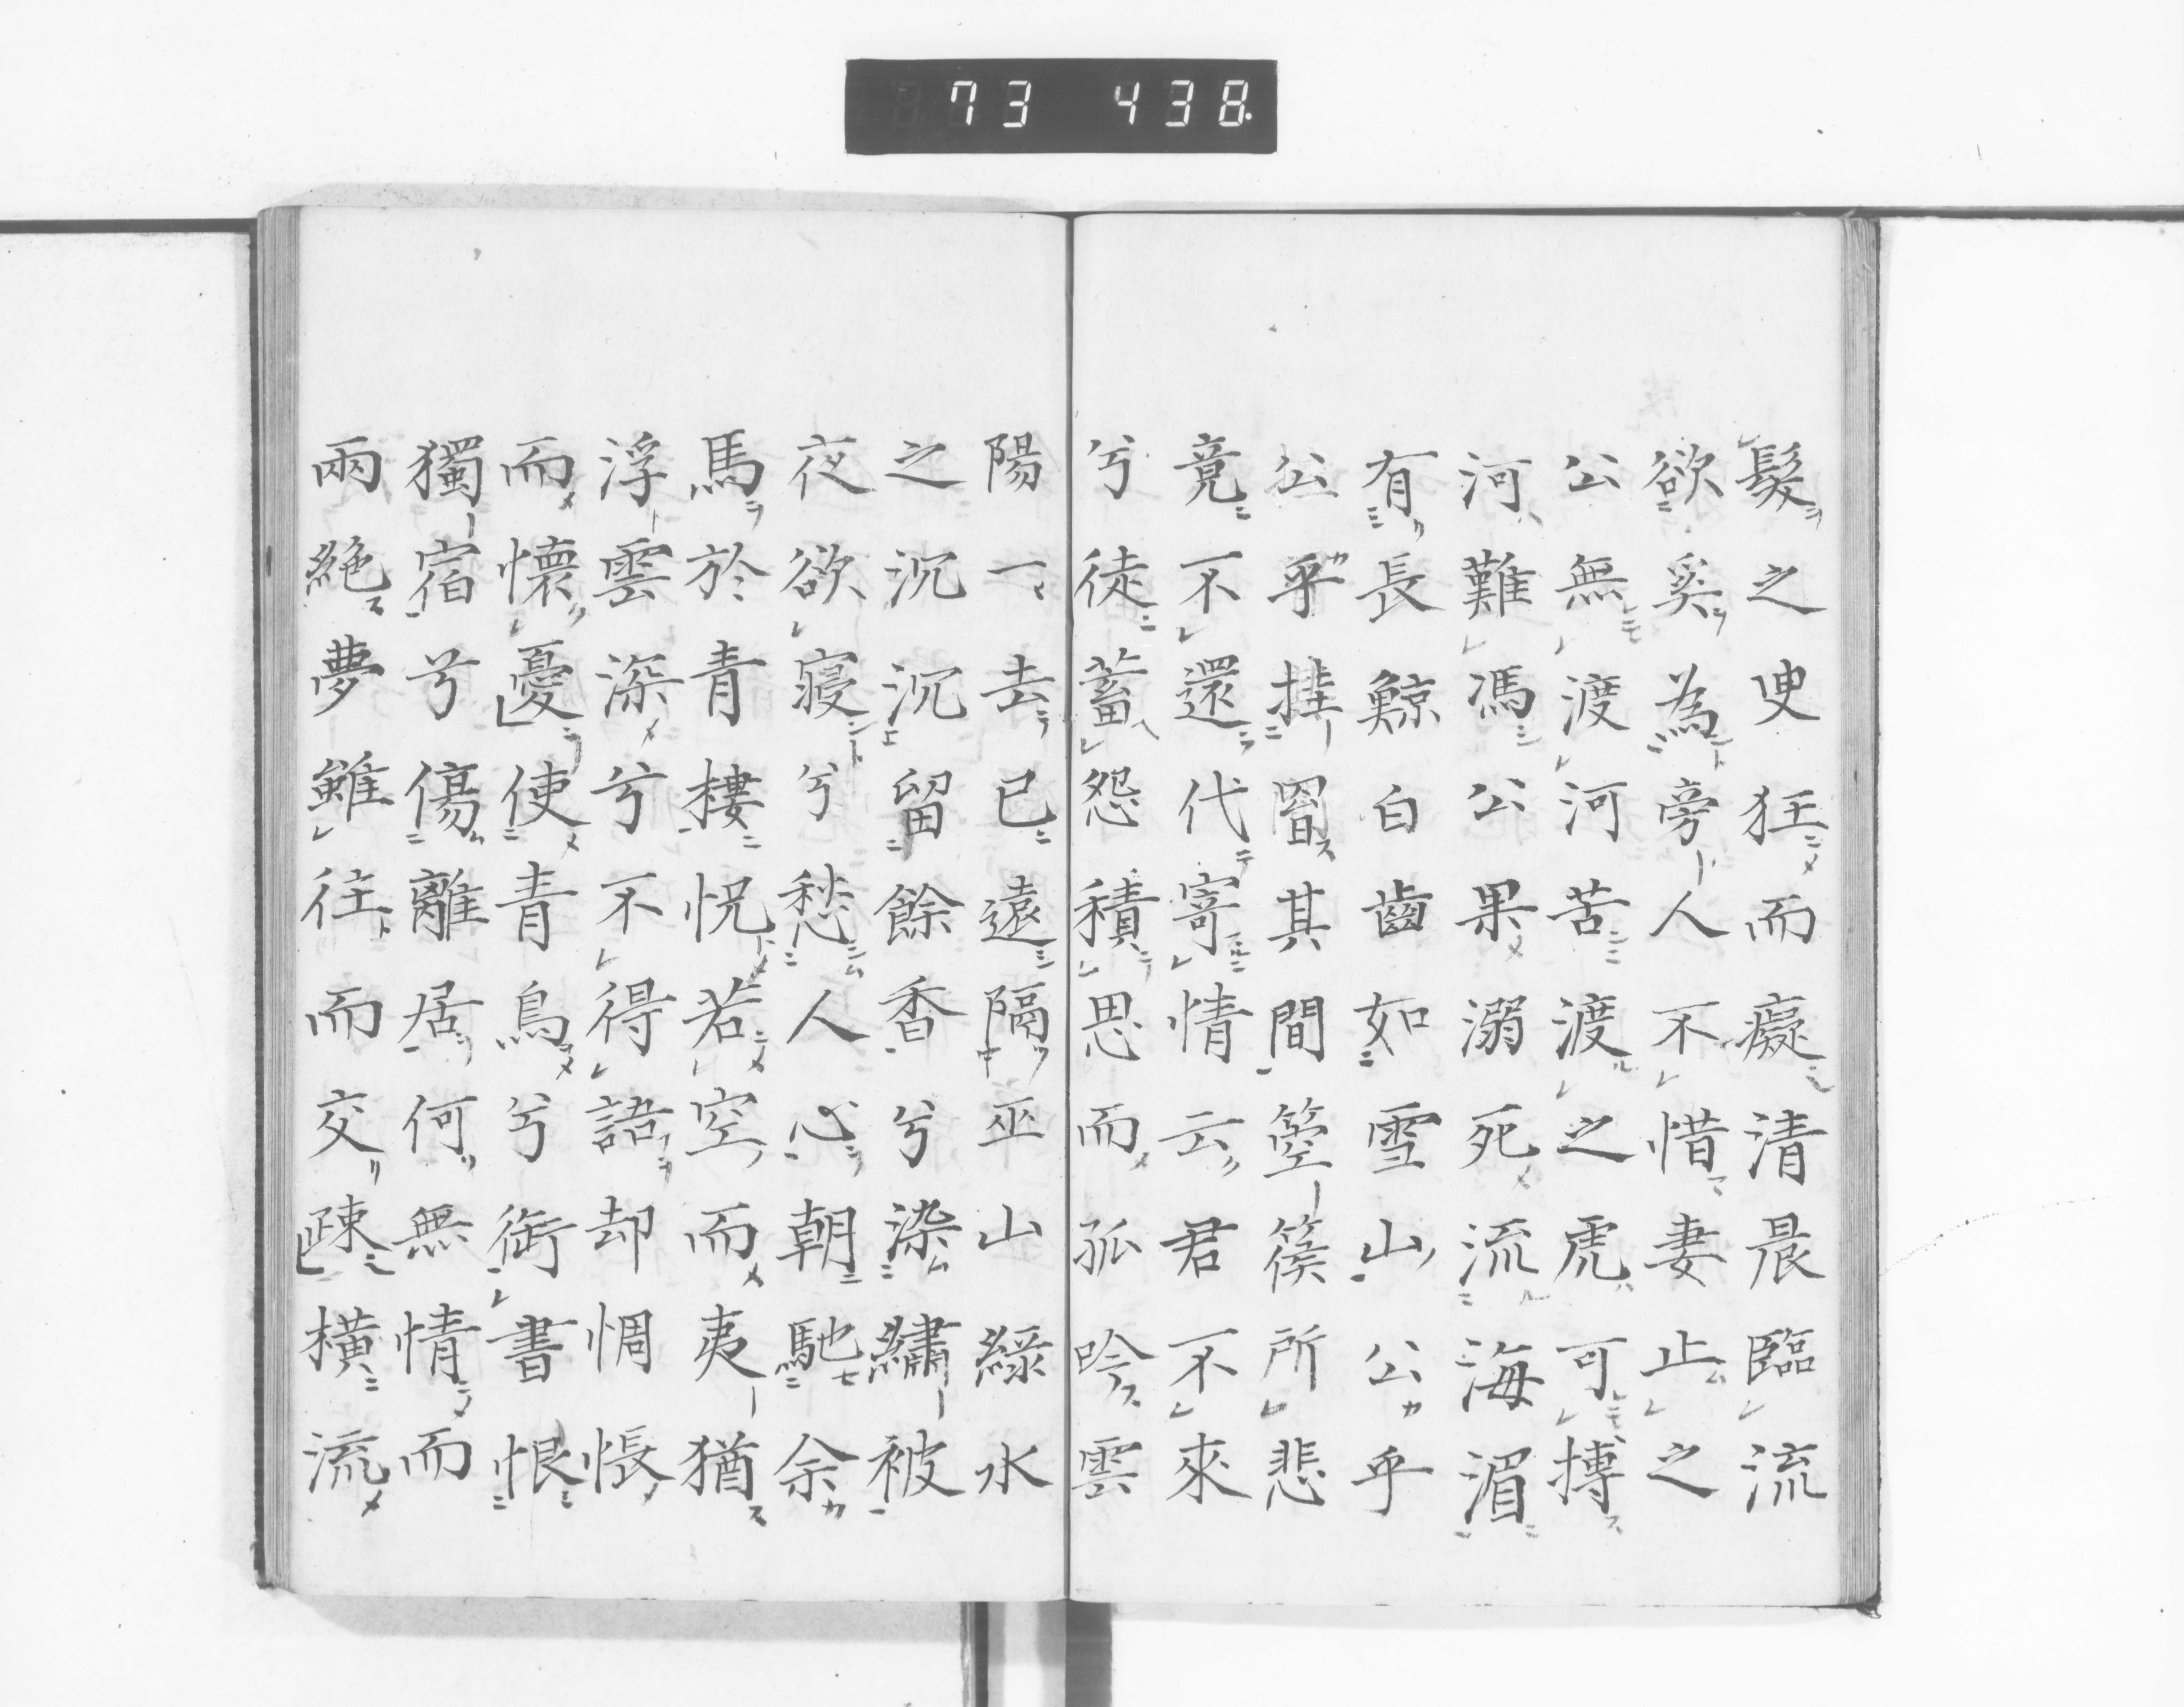 73 438.
髮之叟狂而癡清晨臨流
欲奚為旁人不惜妻止之
公無渡河苦渡之虎可搏
河難馮公果溺死流海湄
有長鯨白齒如雪山公乎
公乎挂罥其間箜篌所悲
竟不還代寄情云君不來
兮徒蓄怨積思而孤吟雲
陽一去已遠隔巫山綠水
之沉沉留餘香兮染繡被
夜欲寢兮愁人心朝馳余
馬於青樓怳若空而夷猶
浮雲深兮不得語却惆悵
而懷憂使青鳥兮銜書恨
獨宿兮傷離居何無情而
兩絶夢雖往而交疎橫流